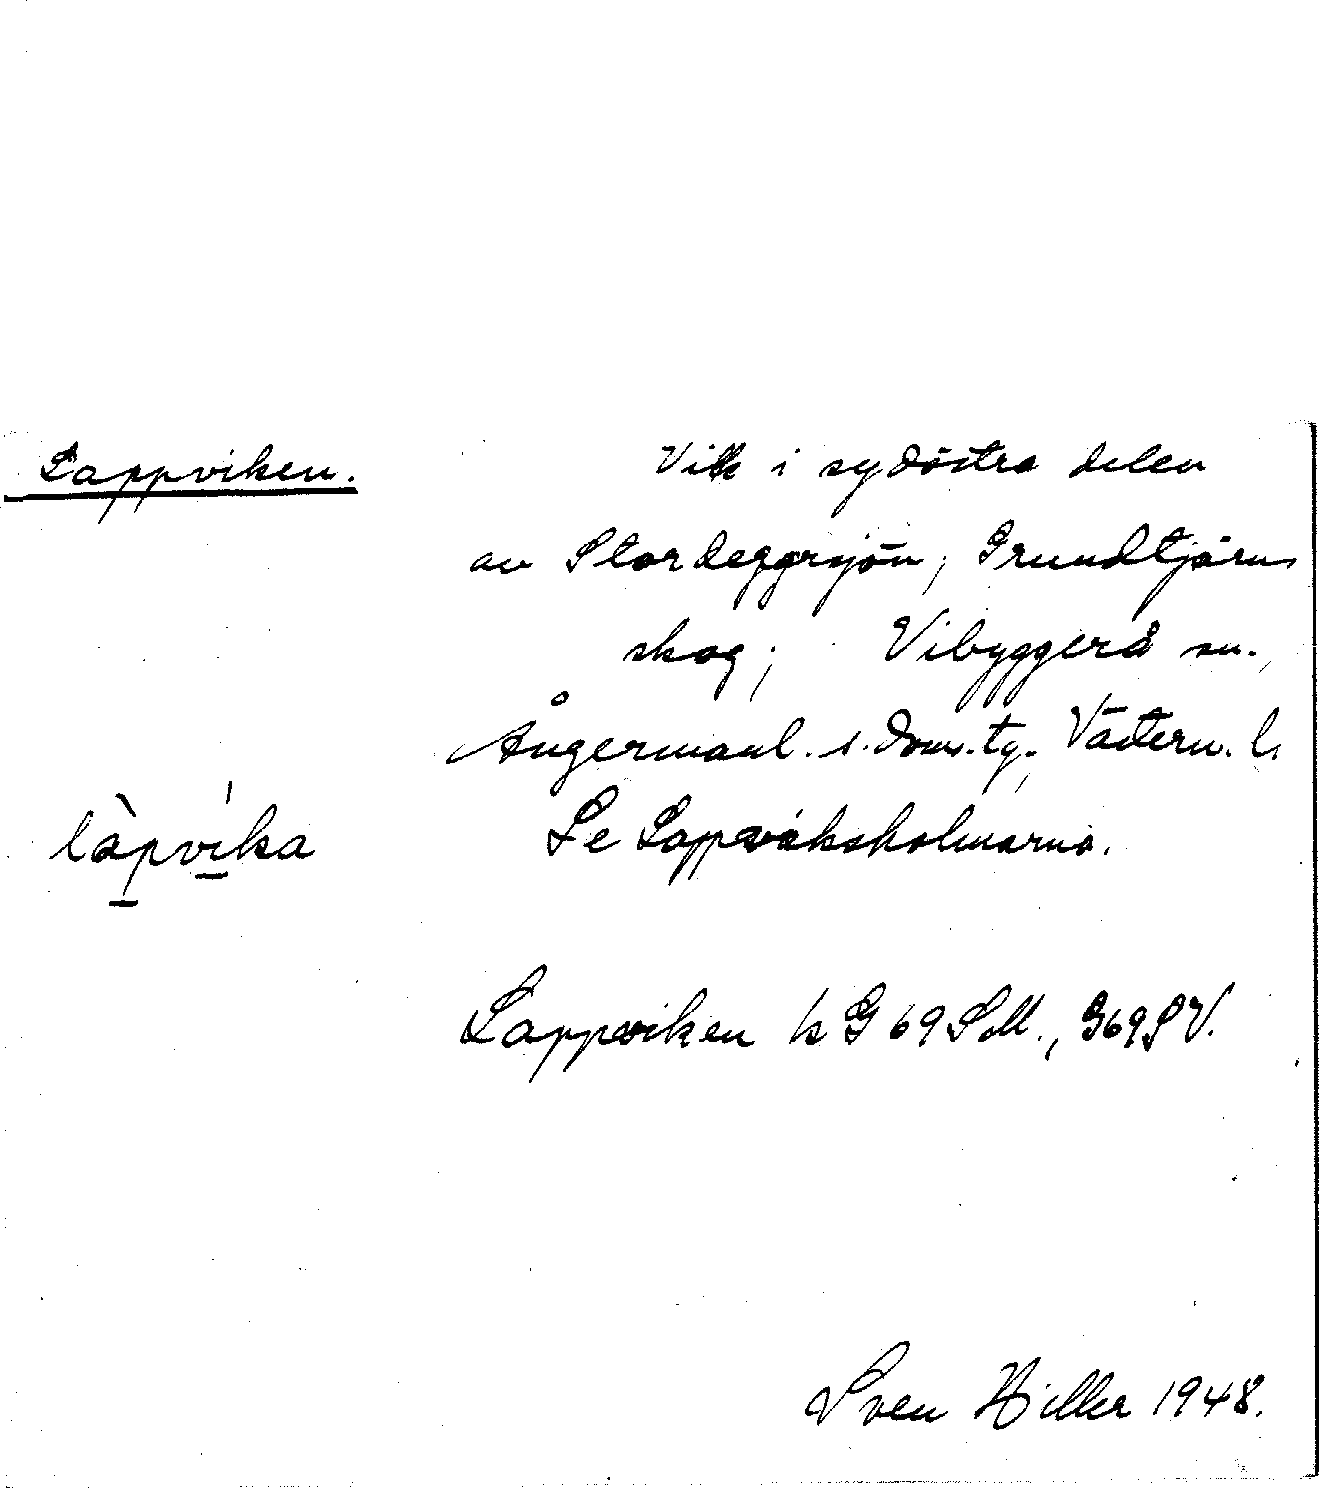 Lappviken.
Vik i sydöstra delen
av Stordeggrsjön, Grundtjärns
skog; Vibyggerå sn.,
Ångermanl. s. doms.tg., Västern. l.
làpvíka
Se Lappviksholmarna.
Lappviken k G 69 SM., G69SV.
Sven Hiller 1948.